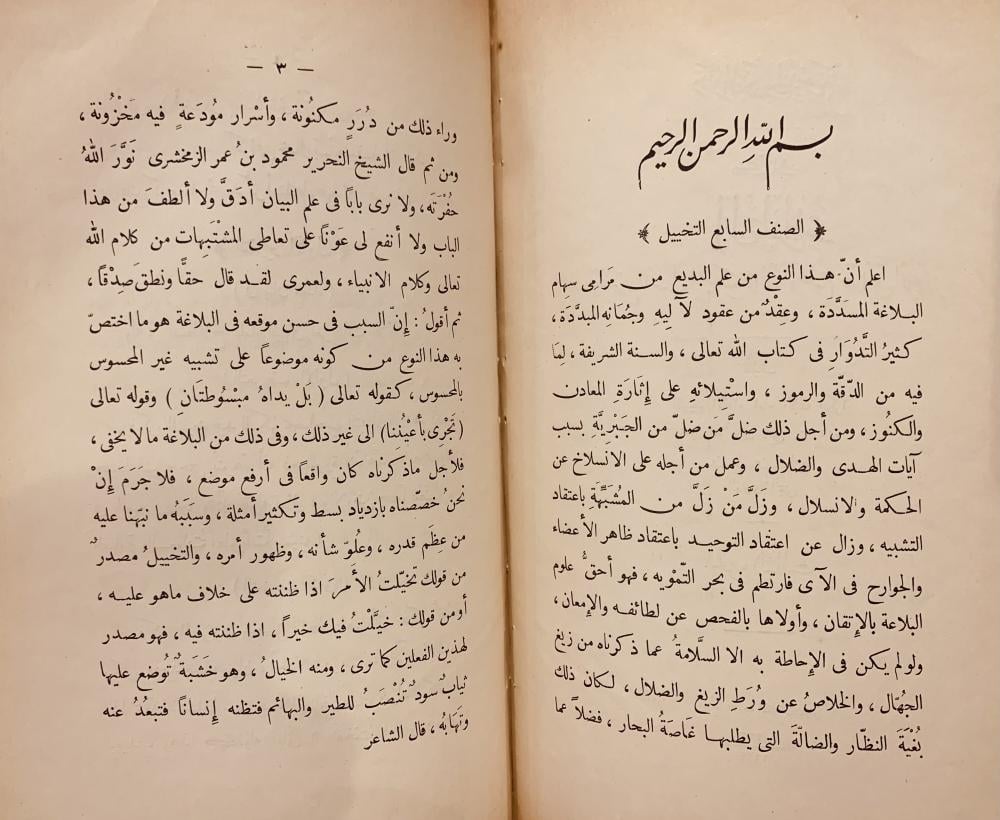 بسم الله الرحمن الرحيم
﴿ الصنف السابع التخييل ﴾
اعلم أنّ هذا النوع من علم البديع من مَرامِى سِهام
البلاغة المسَدَّدَة ، وعِقْدٌ من عقود لآلِيهِ وجُمَانِهِ المبدَّدَة ،
كثيرُ التَّدْوَارِ فى كتاب الله تعالى ، والسنة الشريفة ، لِمَا
فيه من الدّقّة والرموز ، واسْتِيلائهِ على إثارَةِ المعادن
والكنُوز ، ومن أجل ذلك ضلَّ مَن ضلّ من الجَبْرِيَّةِ بسبب
آيات الهدى والضلال ، وعمل من أجله على الانسلاخ عن
الحكمة والانسلال ، وزَلَّ مَنْ زَلَّ من المُشَبِّهَةِ باعتقاد
التشبيه ، وزال عن اعتقاد التوحيد باعتقاد ظاهر الأعضاء
والجوارح فى الآى فارتطم فى بحر التّمْويه ، فهو أحقُّ علوم
البلاغة بالإتقان ، وأولاها بالفحص عن لطائفه والإمعان ،
ولو لم يكن فى الإحاطة به الا السلامةُ عما ذكرناه من زيغ
الجُهّال ، والخلاصُ عن وُرَطِ الزيغ والضلال ، لكان ذلك
بُغْيَةَ النظّار والضالّةَ التى يطلبها غَاصَةُ البحار ، فضلاً عما
— ٣ —
وراء ذلك من دُرَرٍ مكنُونة ، وأسْرار مُودَعةٍ فيه مَخْزُونة ،
ومن ثم قال الشيخ النحرير محمود بنُ عمر الزمخشرى نَوَّرَ اللهُ
حفُرْتَه ، ولا نرى بابًا فى علم البيان أدَقَّ ولا ألطفَ من هذا
الباب ولا أنفع لى عَوْنًا على تعاطى المشْتَبِهات من كلام الله
تعالى وكلام الانبياء ، ولعمرى لقد قال حقًّا ونطق صِدْقًا ،
ثم أقولُ : إنّ السبب فى حسن موقعه فى البلاغة هو ما اختصّ
به هذا النوع من كونه موضوعاً على تشبيه غير المحسوس
بالمحسوس ، كقوله تعالى ( بَلْ يداهُ مبْسُوطتَانِ ) وقوله تعالى
(تَجْرِى بأعْيُننا) الى غير ذلك ، وفى ذلك من البلاغة ما لا يخفى ،
فلأجل ماذكرناه كان واقعاً فى أرفع موضع ، فلا جَرَمَ إنْ
نحنُ خصّصناه بازدياد بسط وتكثير أمثلة ، وسَبَبُه ما نبّهنا عليه
من عِظَم قدره ، وعُلُوّ شأنه ، وظهور أمره ، والتخييلُ مصدرٌ
من قولك تخيّلتُ الأَمرَ اذا ظننته على خلاف ماهو عليه ،
أو من قولك : خيَّلْتُ فيك خيراً ، اذا ظننته فيه ، فهو مصدر
لهذين الفعلين كما ترى ، ومنه الخيالُ ، وهو خَشَبَةٌ تُوضع عليها
ثيابٌ سودٌ تُنْصَبُ للطير والبهائم فتظنه إنسانًا فتبعُدُ عنه
وتَهابُه ، قال الشاعر